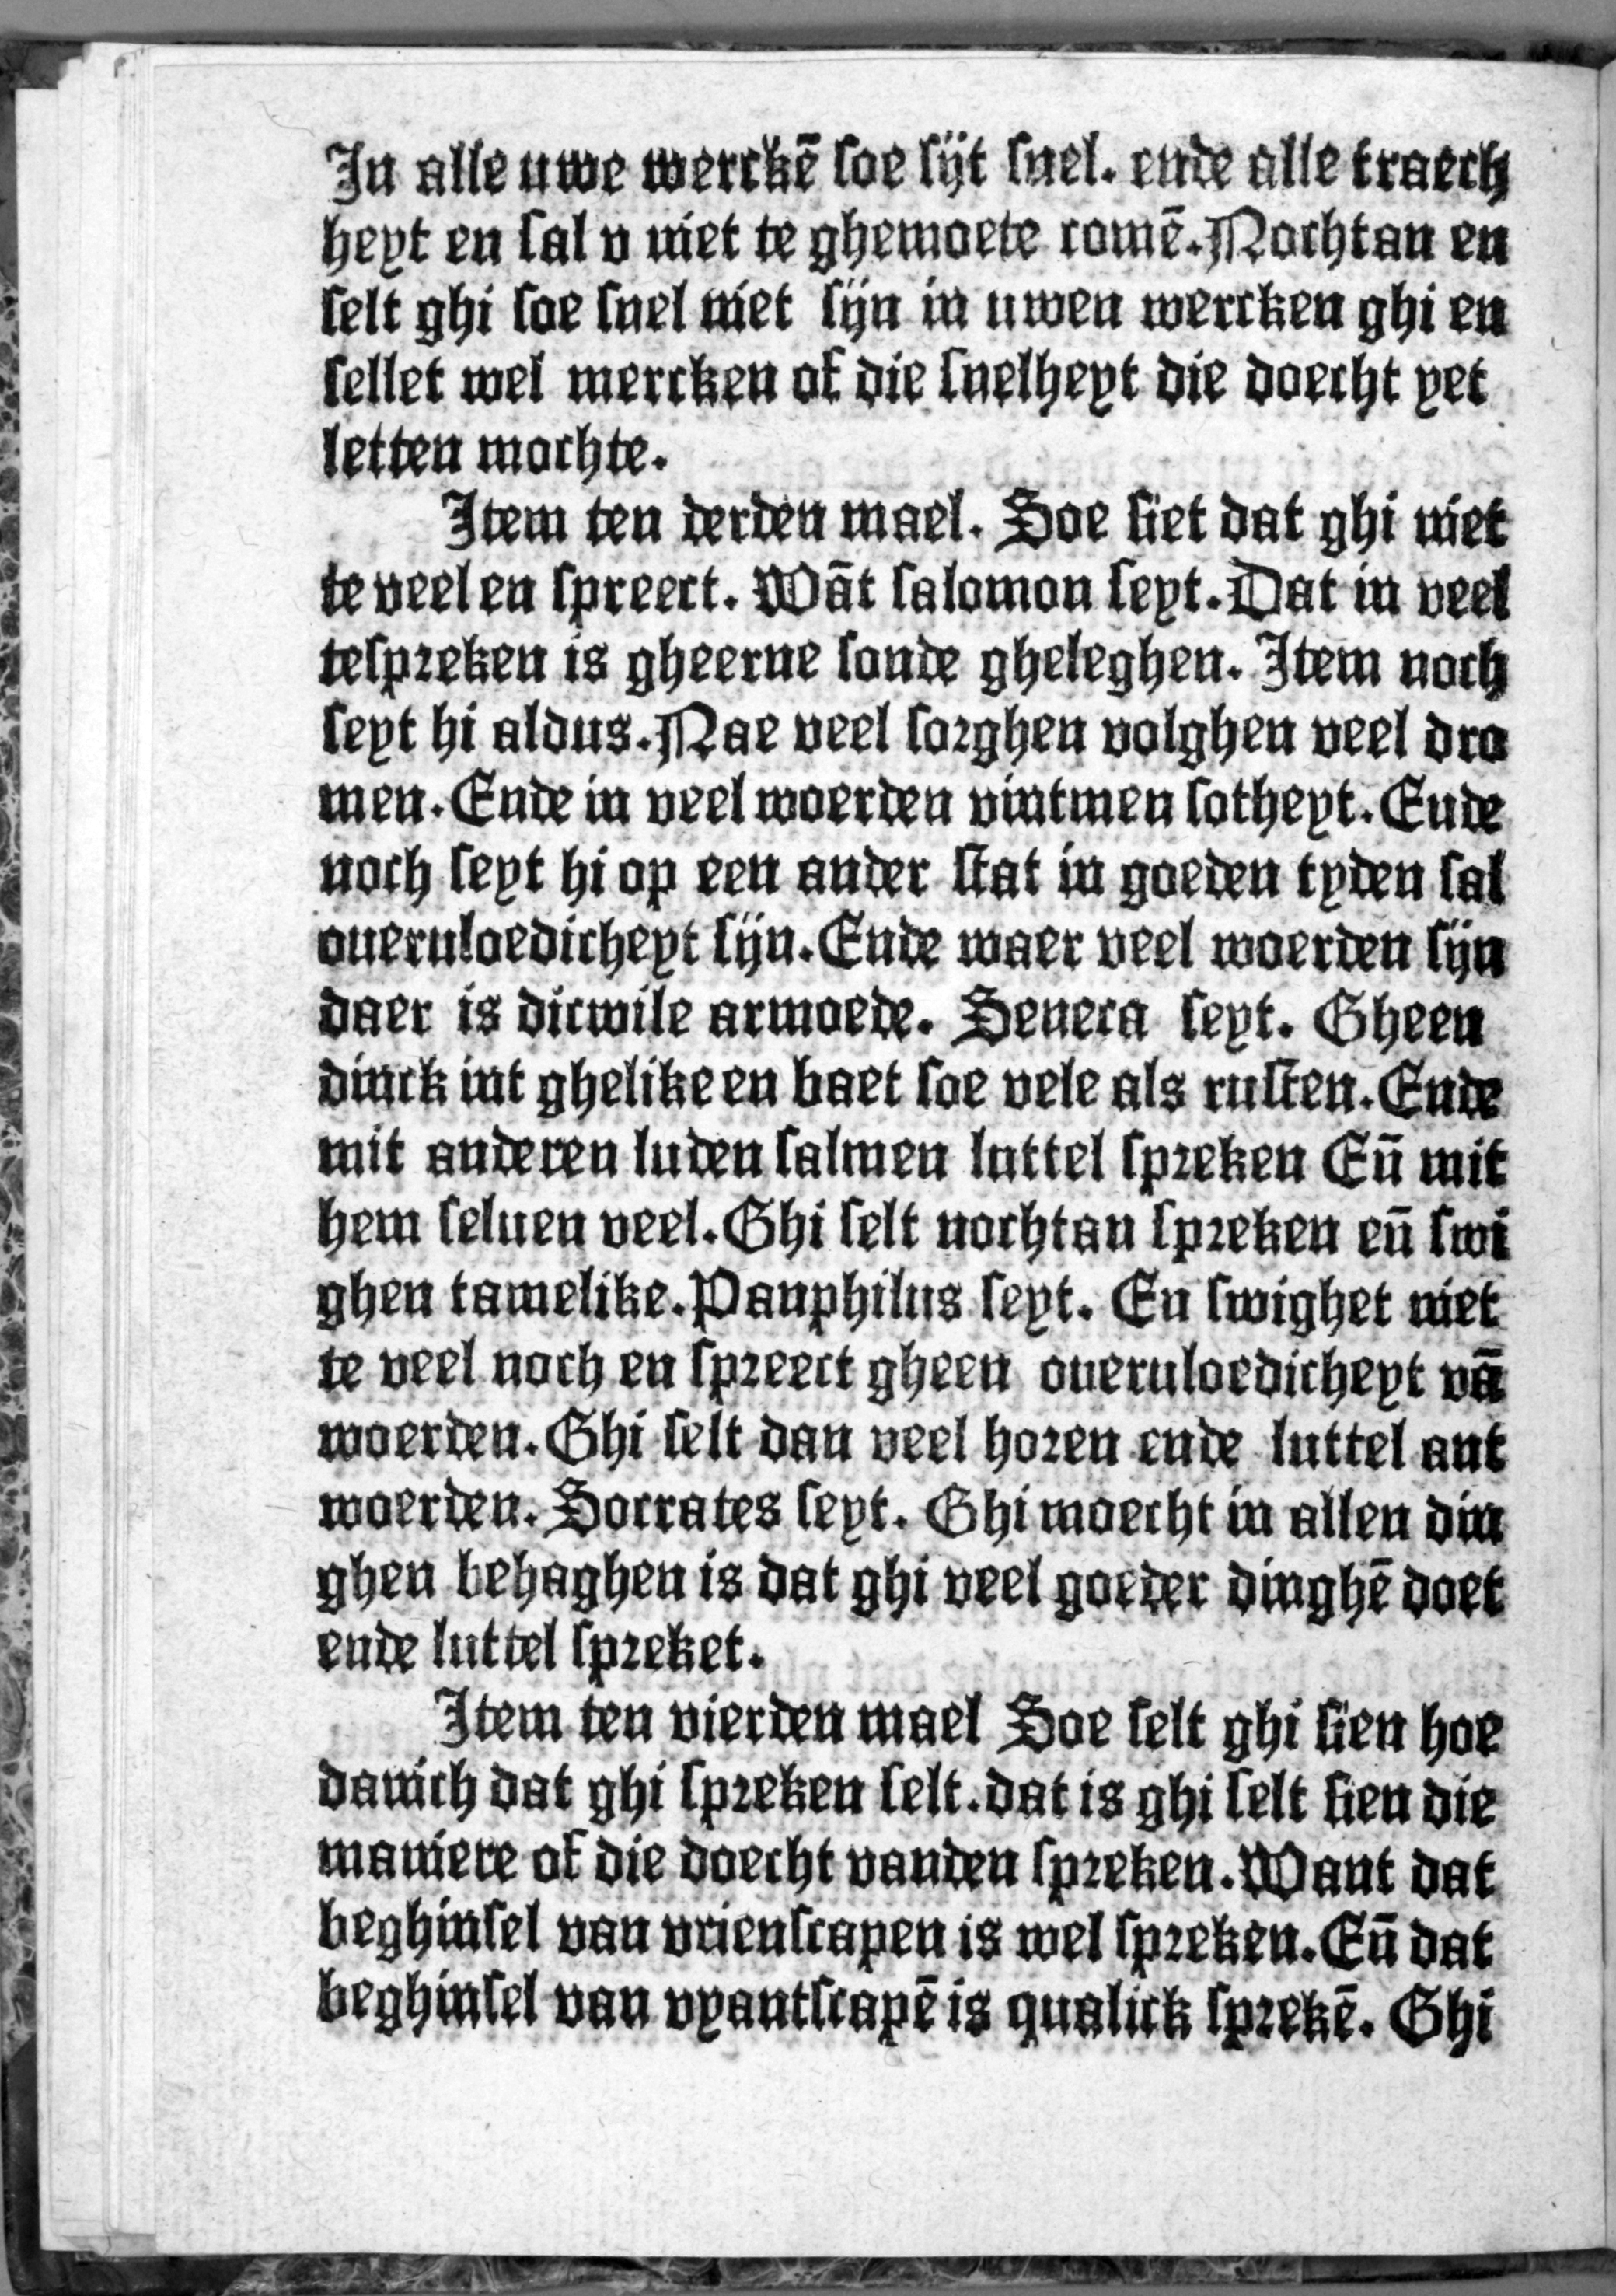 In alle uwe werckē soe sijt snel. ende alle traech
heyt en sal v niet te ghemoete comē. Nochtan en
selt ghi soe snel niet sijn in uwen wercken ghi en
sellet wel mercken of die snelheyt die doecht yet
letten mochte.
Item ten derden mael. Soe siet dat ghi niet
te veel en spreect. Wāt salomon seyt. Dat in veel
tespreken is gheerne sonde gheleghen. Item noch
seyt hi aldus. Nae veel sorghen volghen veel dro
men. Ende in veel woerden vintmen sotheyt. Ende
noch seyt hi op een ander stat in goeden tyden sal
oueruloedicheyt sijn. Ende waer veel woerden sijn
daer is dicwile armoede. Seneca seyt. Gheen
dinck int ghelike en baet soe vele als rusten. Ende
mit anderen luden salmen luttel spreken Eñ mit
hem seluen veel. Ghi selt nochtan spreken eñ swi
ghen tamelike. Panphilus seyt. En swighet niet
te veel noch en spreect gheen oueruloedicheyt vā
woerden. Ghi selt dan veel horen ende luttel ant
woerden. Socrates seyt. Ghi moecht in allen din
ghen behaghen is dat ghi veel goeder dinghē doet
ende luttel spreket.
Item ten vierden mael Soe selt ghi sien hoe
danich dat ghi spreken selt. dat is ghi selt sien die
maniere of die doecht vanden spreken. Want dat
beghinsel van vrienscapen is wel spreken. Eñ dat
beghinsel van vyantscapē is qualick sprekē. Ghi